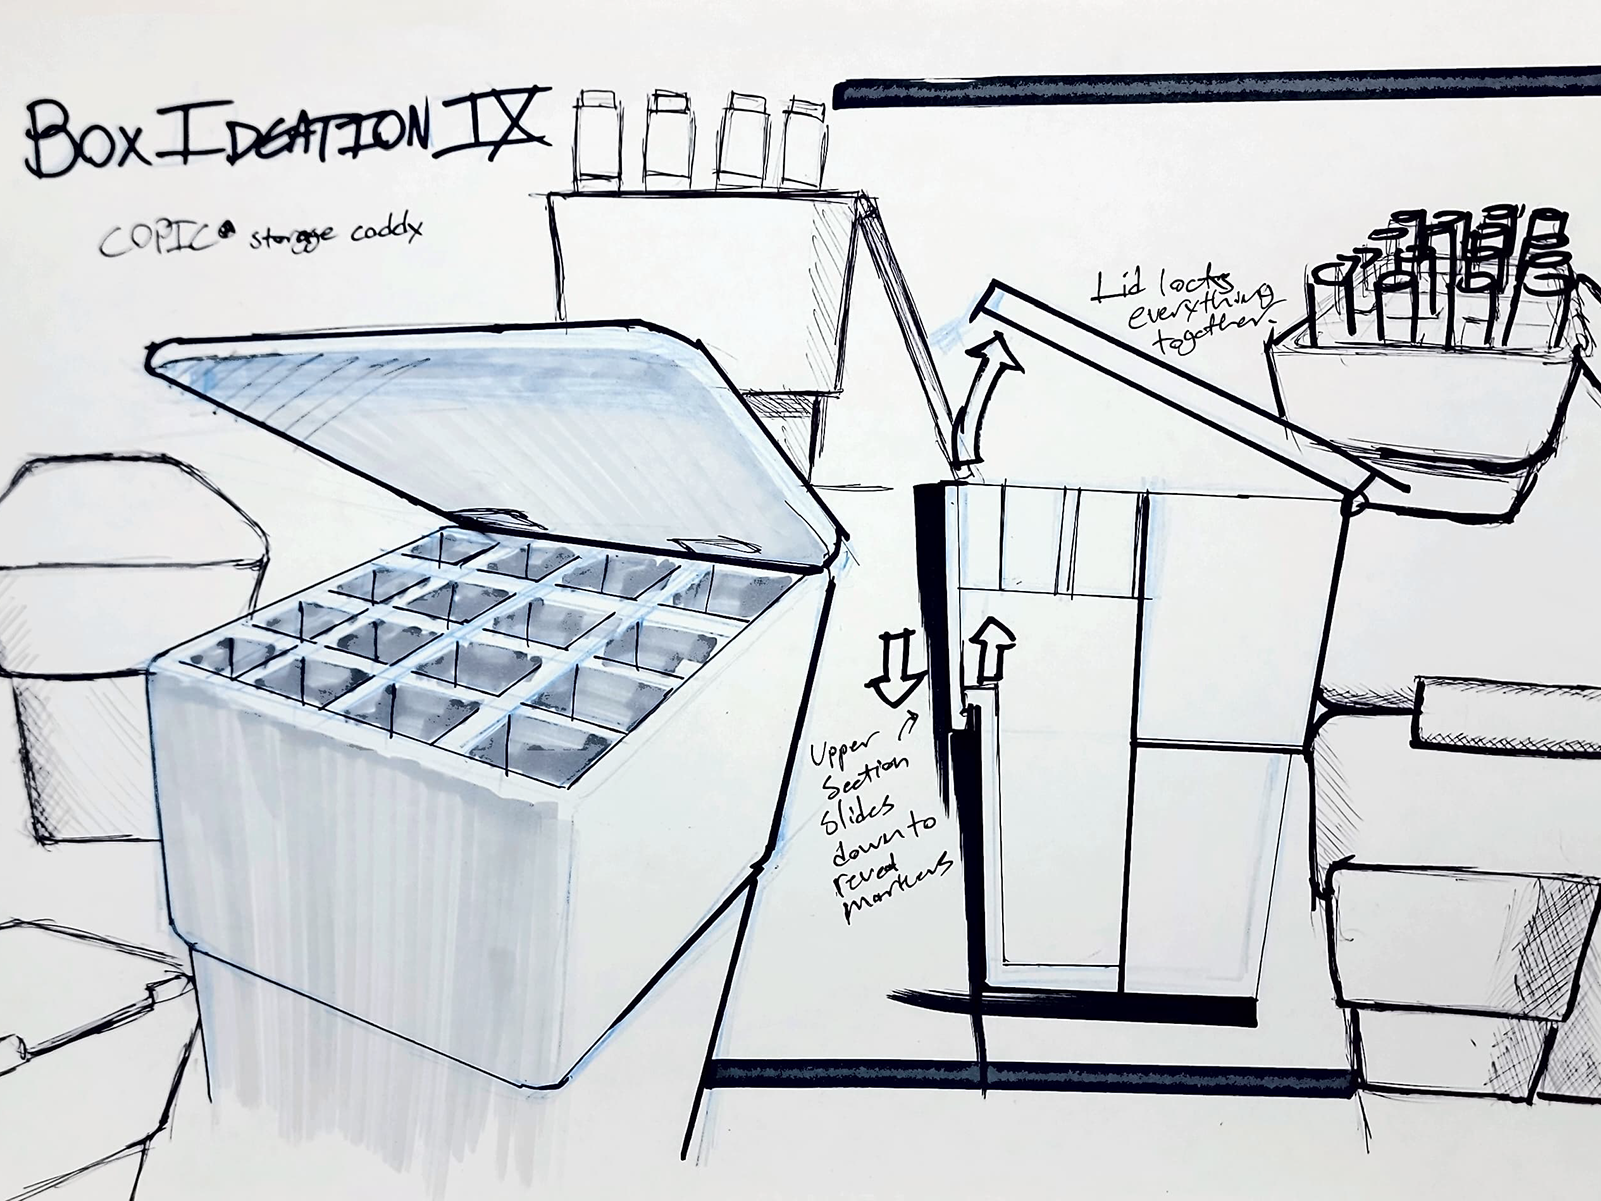 BOX IDEATION IX
COPIC® storage caddy
Lid locks
everything
together.
Upper
section
slides
down to
reveal
markers